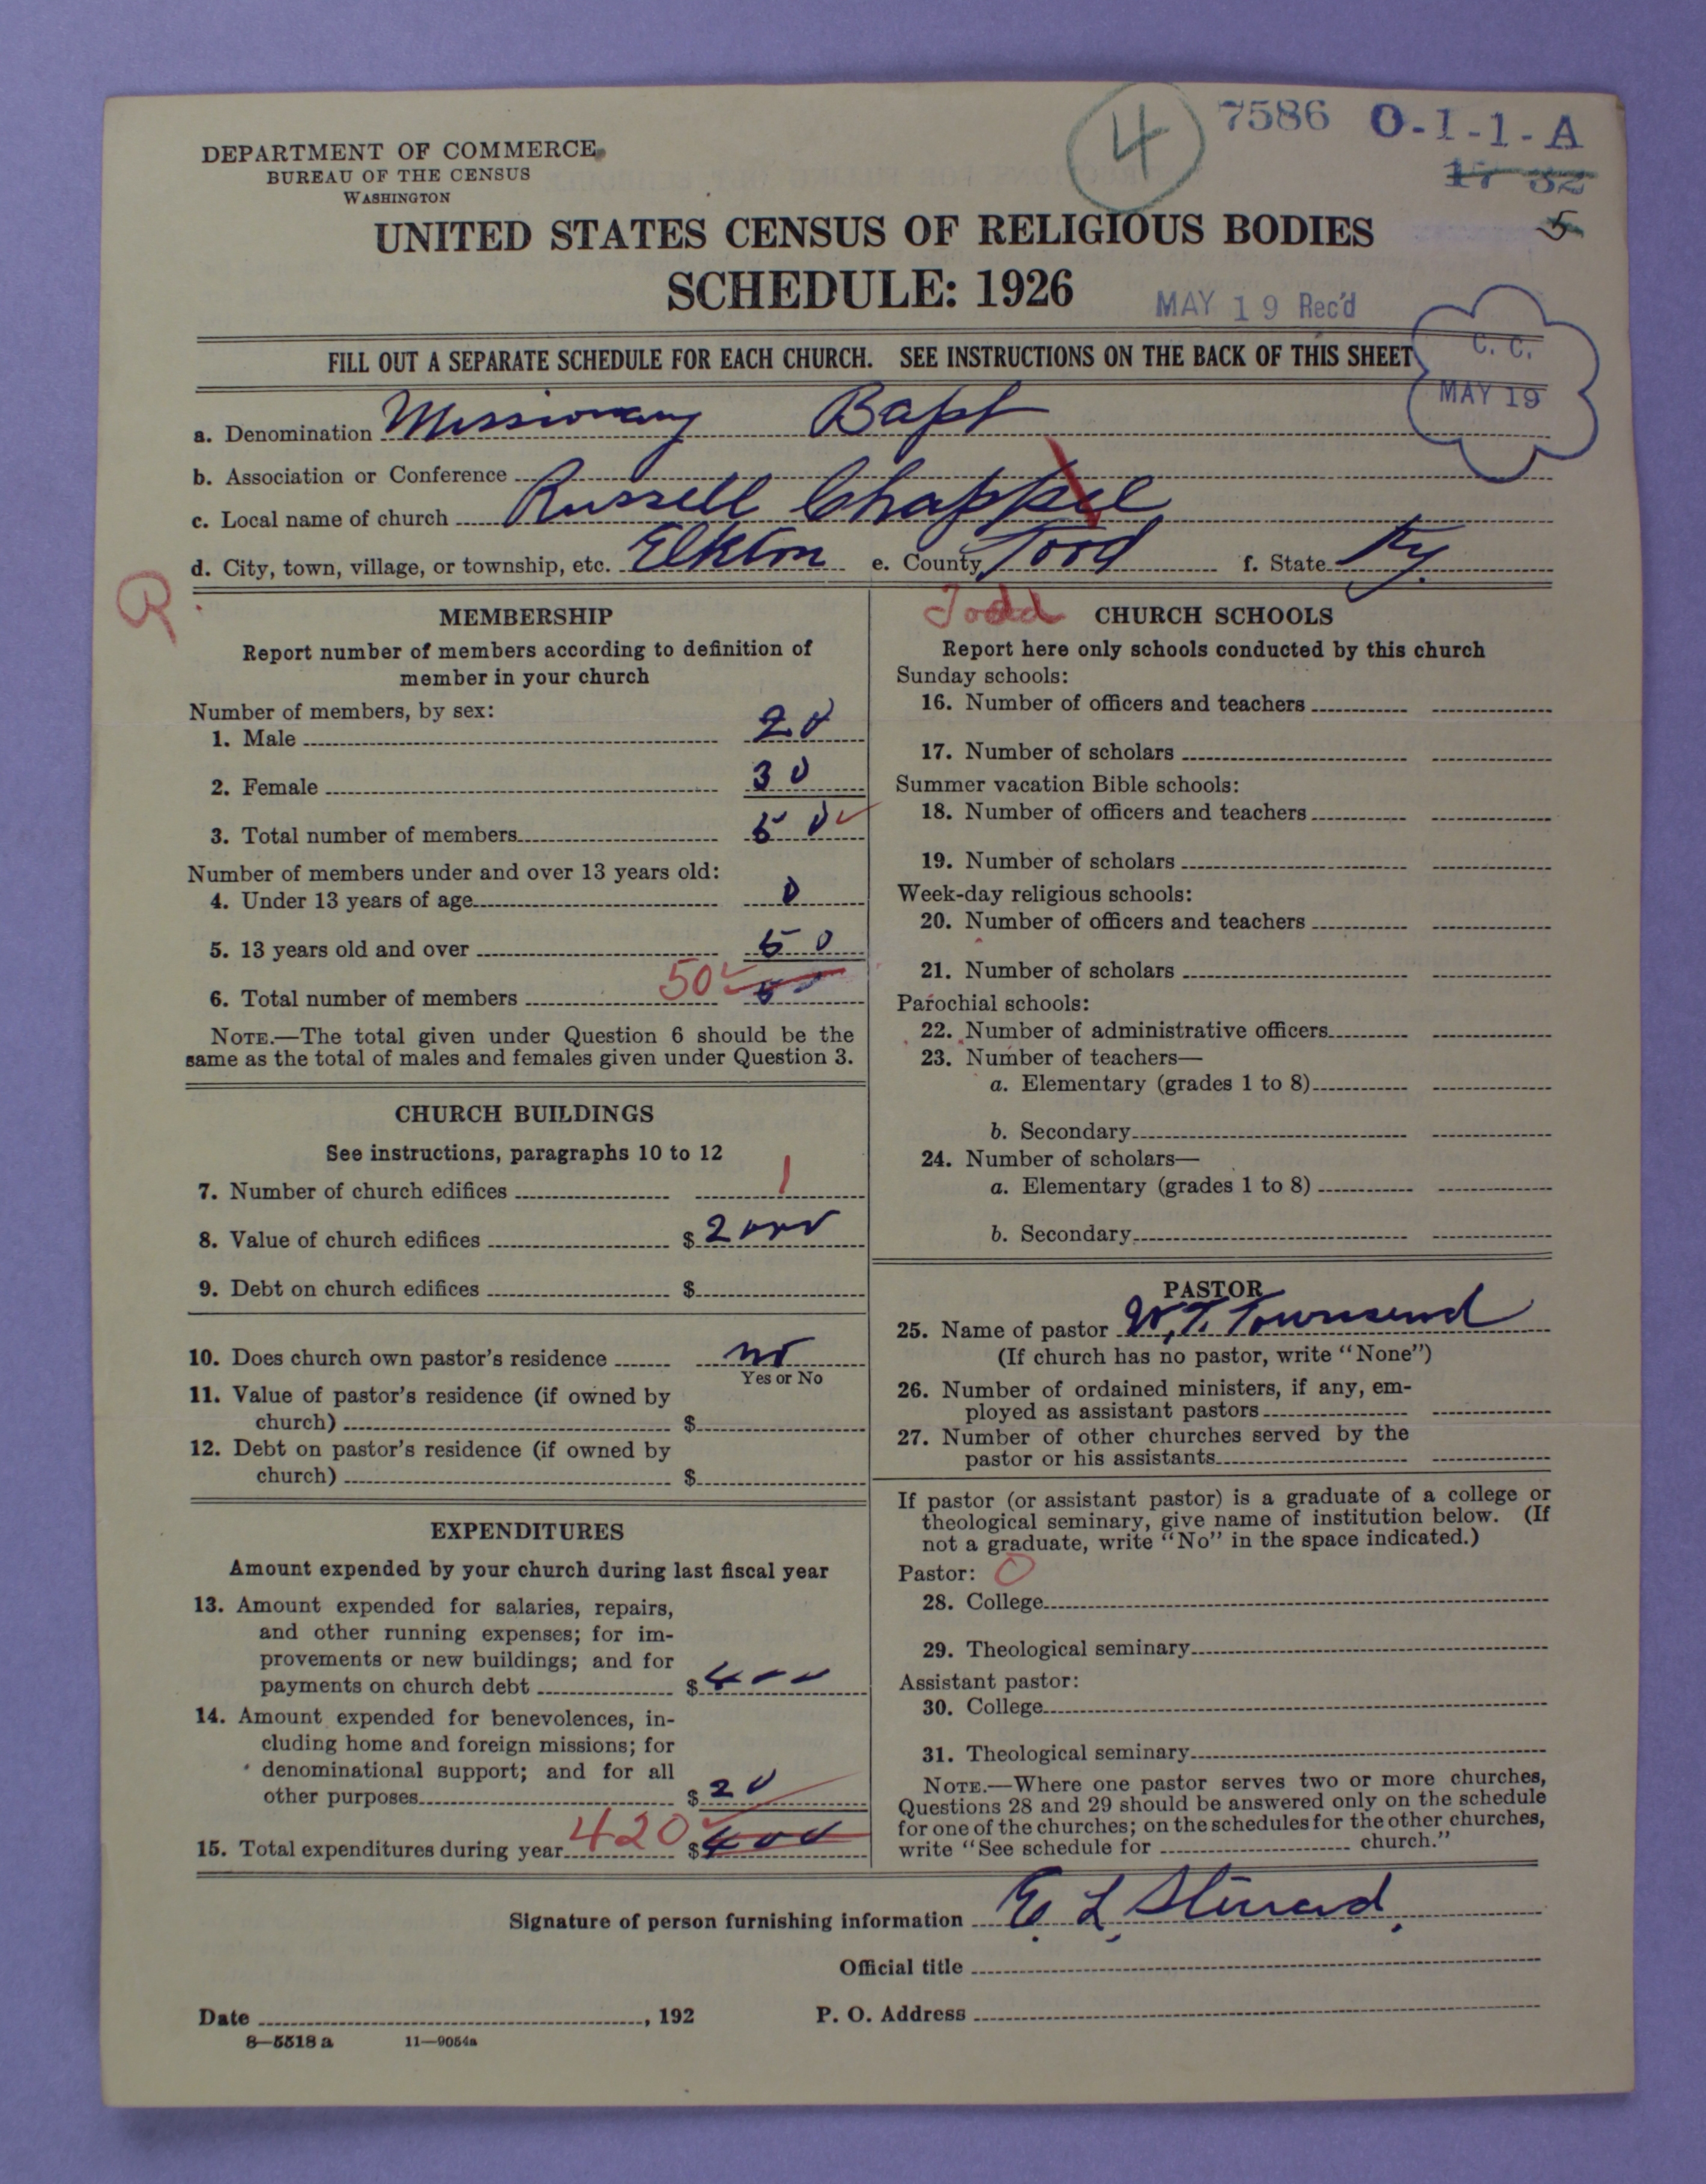 4
7586 O-1-1-A
17 32
5
DEPARTMENT OF COMMERCE
BUREAU OF THE CENSUS
WASHINGTON
UNITED STATES CENSUS OF RELIGIOUS BODIES
SCHEDULE: 1926
MAY 19 Rec'd
FILL OUT A SEPARATE SCHEDULE FOR EACH CHURCH. SEE INSTRUCTIONS ON THE BACK OF THIS SHEET
C. C.
MAY 19
a. Denomination Missionary Bapt
b. Association or Conference
c. Local name of church Russell Chappel
d. City, town, village, or township, etc. Elkton e. County Todd f. State Ky.
R.
MEMBERSHIP
Report number of members according to definition of
member in your church
Number of members, by sex:
1. Male 20
2. Female 30
3. Total number of members 50
Number of members under and over 13 years old:
4. Under 13 years of age 0
5. 13 years old and over 50
6. Total number of members 50
NOTE.—The total given under Question 6 should be the
same as the total of males and females given under Question 3.
CHURCH BUILDINGS
See instructions, paragraphs 10 to 12
7. Number of church edifices 1
8. Value of church edifices $ 2000
9. Debt on church edifices $
10. Does church own pastor's residence no
Yes or No
11. Value of pastor's residence (if owned by
church) $
12. Debt on pastor's residence (if owned by
church) $
EXPENDITURES
Amount expended by your church during last fiscal year
13. Amount expended for salaries, repairs,
and other running expenses; for im-
provements or new buildings; and for
payments on church debt $ 400
14. Amount expended for benevolences, in-
cluding home and foreign missions; for
denominational support; and for all
other purposes $ 20
15. Total expenditures during year 420 $ 400
Todd
CHURCH SCHOOLS
Report here only schools conducted by this church
Sunday schools:
16. Number of officers and teachers
17. Number of scholars
Summer vacation Bible schools:
18. Number of officers and teachers
19. Number of scholars
Week-day religious schools:
20. Number of officers and teachers
21. Number of scholars
Parochial schools:
22. Number of administrative officers
23. Number of teachers—
a. Elementary (grades 1 to 8)
b. Secondary
24. Number of scholars—
a. Elementary (grades 1 to 8)
b. Secondary
PASTOR
25. Name of pastor W. T. Townsend
(If church has no pastor, write "None")
26. Number of ordained ministers, if any, em-
ployed as assistant pastors
27. Number of other churches served by the
pastor or his assistants
If pastor (or assistant pastor) is a graduate of a college or
theological seminary, give name of institution below. (If
not a graduate, write "No" in the space indicated.)
Pastor: O
28. College
29. Theological seminary
Assistant pastor:
30. College
31. Theological seminary
NOTE.—Where one pastor serves two or more churches,
Questions 28 and 29 should be answered only on the schedule
for one of the churches; on the schedules for the other churches,
write "See schedule for church."
Signature of person furnishing information E. L.
Official title
Date , 192 P. O. Address
8—5518 a 11—9054a